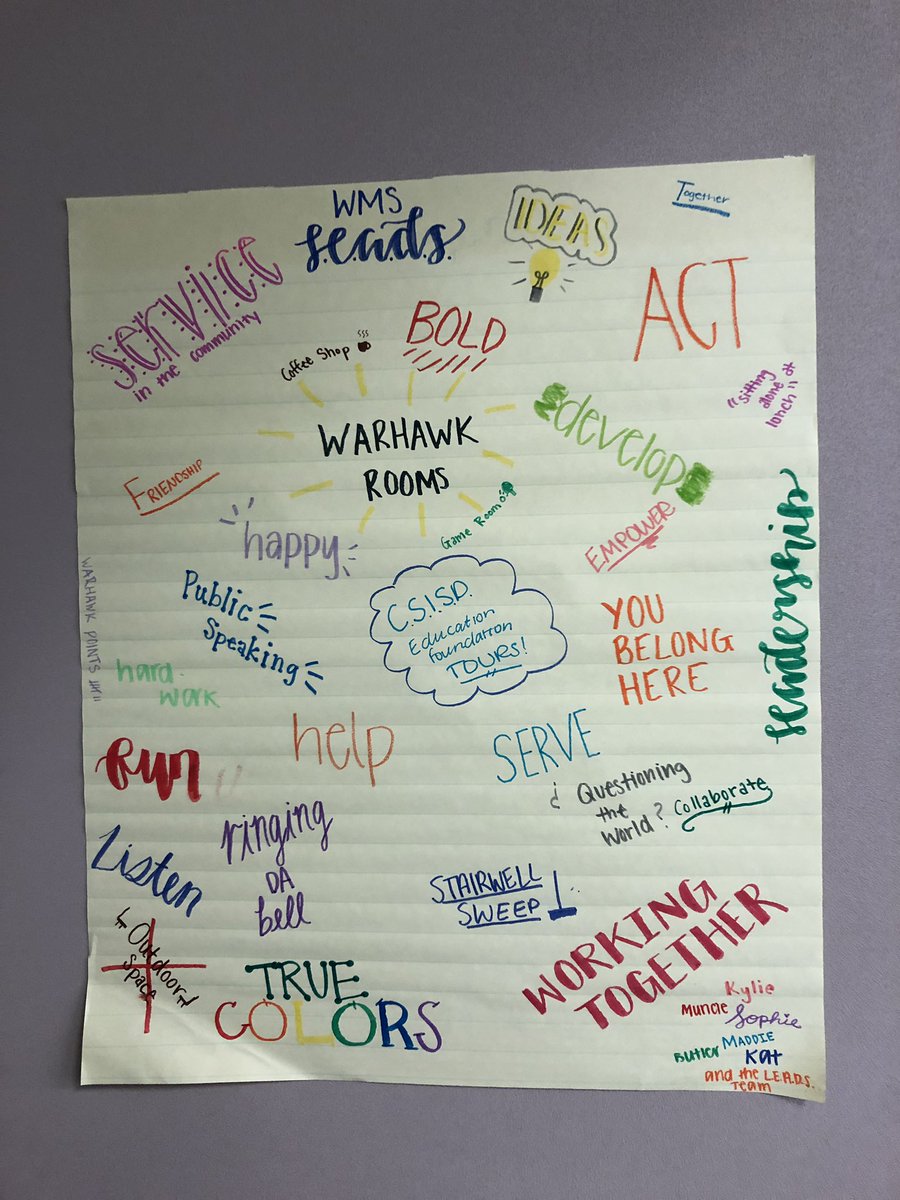 WMS
L.E.A.D.S.
IDEAS
Together
SERVICE
in the community
BOLD
ACT
Coffee Shop
"sitting
alone at
lunch"
WARHAWK
ROOMS
develop
FRIENDSHIP
Game Room
happy
EMPOWER
leadership
WARHAWK POINTS
Public
Speaking
C.S.I.S.D.
Education
foundation
TOURS!
YOU
BELONG
HERE
hard
work
help
SERVE
fun
¿ Questioning
the
World?
Collaborate
ringing
DA
bell
Listen
STAIRWELL
SWEEP
WORKING
TOGETHER
Outdoor
Space
TRUE
COLORS
Kylie
Muncie
Sophie
MADDIE
Butler
Kat
and the L.E.A.D.S.
Team